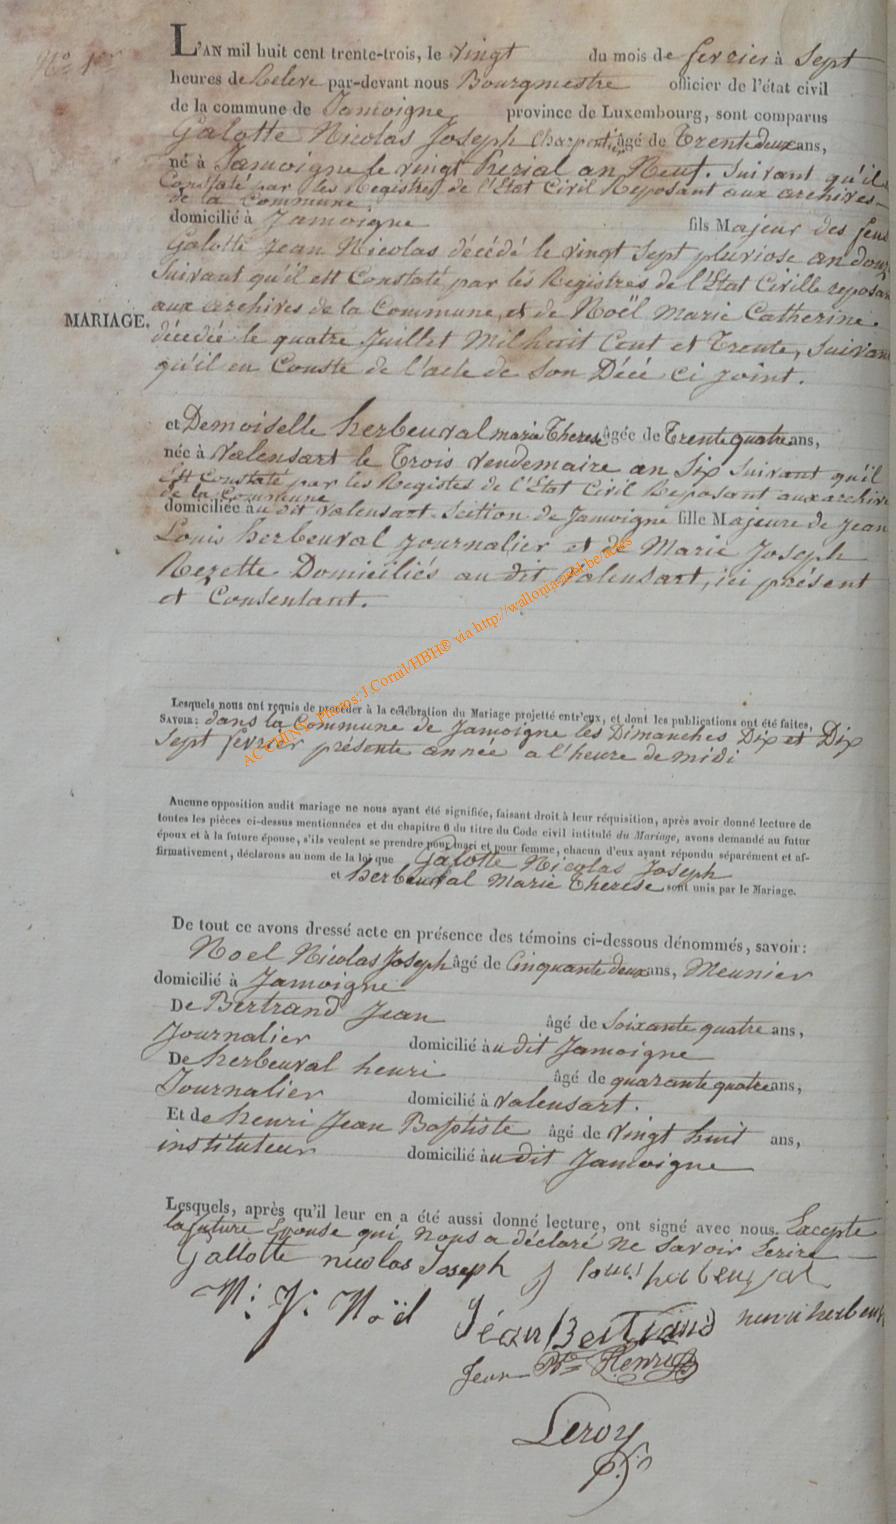 No 1er
L'AN mil huit cent trente-trois, le vingt du mois de fevrier à Sept
heures de Releve par-devant nous Bourgmestre officier de l'état civil
de la commune de Jamoigne province de Luxembourg, sont comparus
Galotte Nicolas Joseph Charpent. âgé de Trente deux ans,
né à Jamoigne le vingt prerial an Neuf. Suivant qu'il
Constaté par les Registres de l'Etat Civil Reposant aux archives
de la Commune
domicilié à Jamoigne fils Majeur des feus
Galotte Jean Nicolas décédé le vingt Sept pluviose an douze
Suivant qu'il est Constaté par les Registres de l'Etat Civille reposant
aux archives de la Commune, et de Noël Marie Catherine
MARIAGE.
décédée le quatre Juillet Mil huit Cent et Trente, Suivant
qu'il en Conste de l'acte de Son Décé ci joint.
et Demoiselle herbeuval marie Therese âgée de Trente quatre ans,
née à Valensart le Trois vendemaire an Six Suivant qu'il
est Constaté par les Registes de l'Etat Civil Reposant aux archive
de la Commune
domiciliée au dit Valensart Section de Jamoigne fille Majeure de Jean
Louis herbeuval journalier et de Marie Joseph
Rezette Domiciliés au dit Valensart, ici présent
et Consentant.
ACCHINY, Photos: J.Cornil/HBH® via http://wallonia-asbl.be/actes
Lesquels nous ont requis de procéder à la célébration du Mariage projetté entr'eux, et dont les publications ont été faites,
SAVOIR: dans la Commune de Jamoigne les Dimanches Dix et Dix
Sept fevrier présente année a l'heure de midi
Aucune opposition audit mariage ne nous ayant été signifiée, faisant droit à leur réquisition, après avoir donné lecture de
toutes les pièces ci-dessus mentionnées et du chapitre 6 du titre du Code civil intitulé du Mariage, avons demandé au futur
époux et à la future épouse, s'ils veulent se prendre pour mari et pour femme, chacun d'eux ayant répondu séparément et af-
firmativement, déclarons au nom de la loi que Galotte Nicolas Joseph
et herbeuval Marie Therese sont unis par le Mariage.
De tout ce avons dressé acte en présence des témoins ci-dessous dénommés, savoir:
Noel Nicolas Joseph âgé de Cinquante deux ans, Meunier
domicilié à Jamoigne
De Bertrand Jean âgé de Soixante quatre ans,
Journalier domicilié au dit Jamoigne
De herbeuval henri âgé de quarante quatre ans,
Journalier domicilié à Valensart.
Et de henri Jean Baptiste âgé de vingt huit ans,
instituteur domicilié au dit Jamoigne
Lesquels, après qu'il leur en a été aussi donné lecture, ont signé avec nous. Excepte
la future Epouse qui Nous a déclaré Ne Savoir Ecrire
Gallotte nicolas Joseph J loui herbeuval
N: J: Noël Jéan Bertrand henri herbeuv
Jean Bte Henri
Leroy